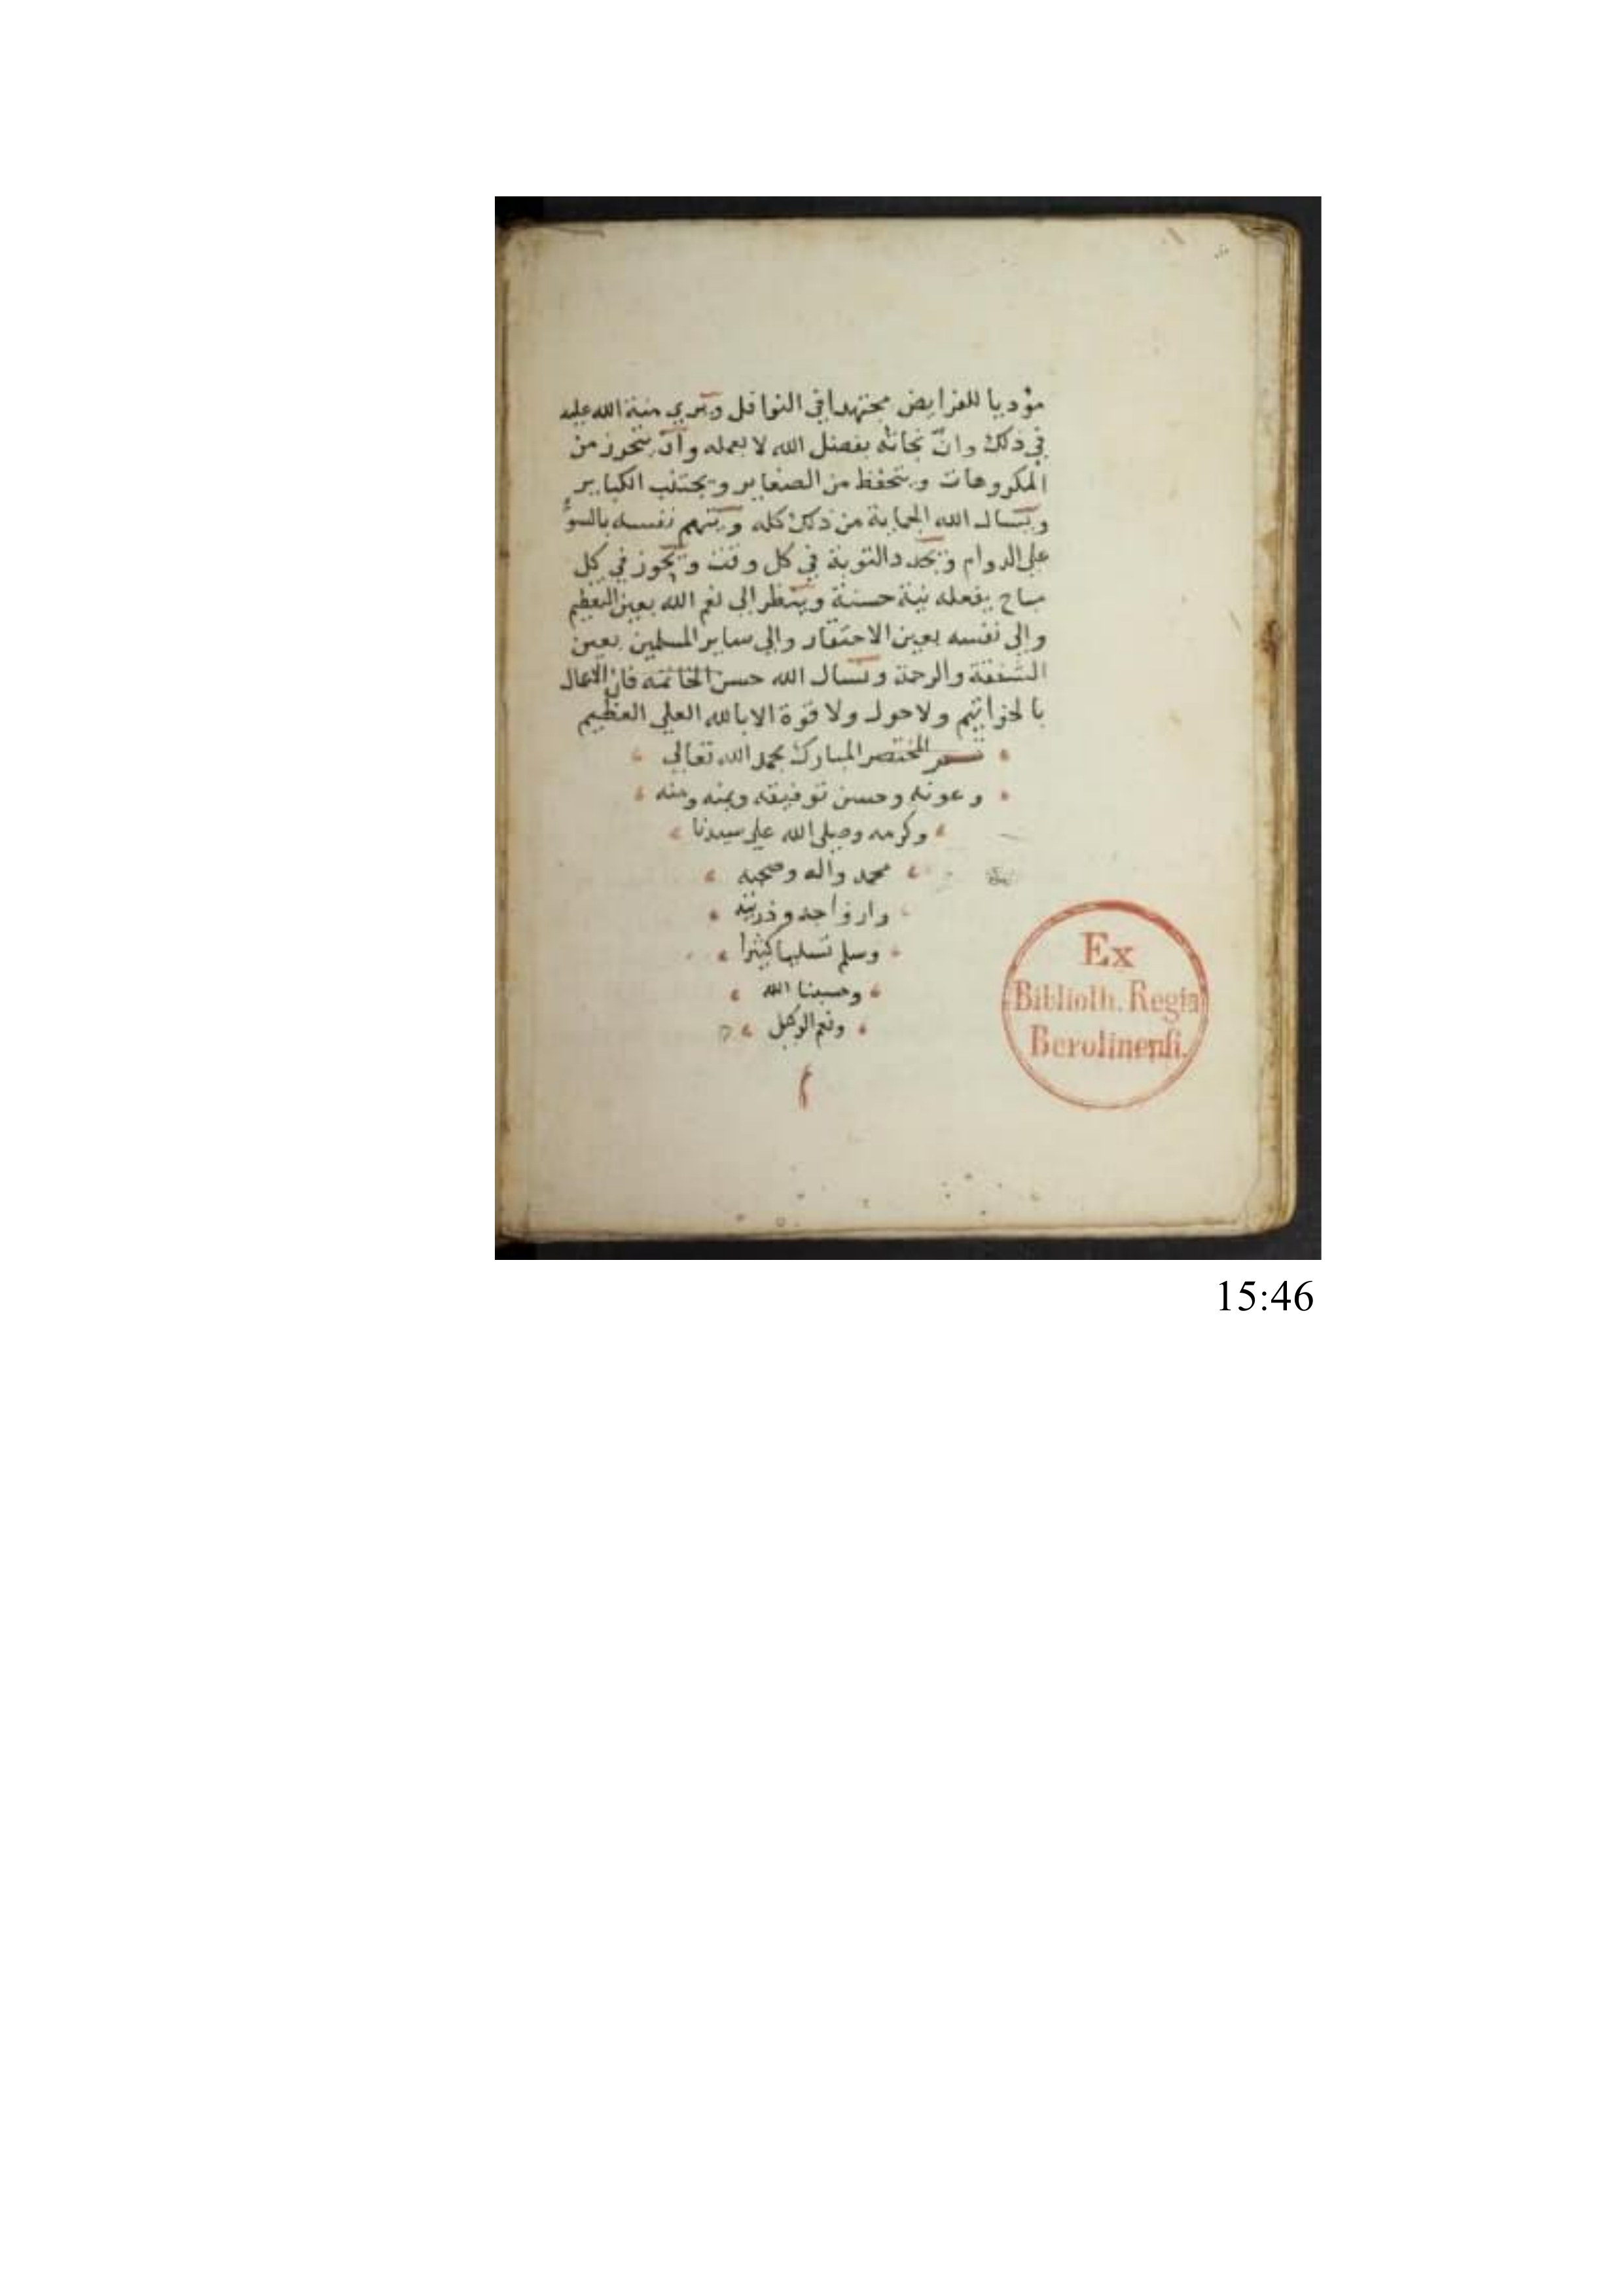 موديا للفرايض مجتهدا في النوافل ويري منة الله عليه
في ذلك وانّ نجاته بفضل الله لا بعمله وان يتحرز من
المكروهات ويتحفظ من الصغاير ويجتنب الكباير
ويسال الله الحماية من ذلك كله ويتهم نفسه بالسوء
على الدوام ويجدد التوبة في كل وقت و في كل
مباح يفعله نية حسنة وينظر الى نعم الله بعين التعظيم
والى نفسه بعين الاحتقار والى ساير المسلمين بعين
الشفقة والرحمة ويسال الله حسن الخاتمة فان الاعمال
بالخواتيم ولا حول ولا قوة الا بالله العلي العظيم
تم المختصر المبارك بحمد الله تعالي
وعونه وحسن توفيقه ويمنه ومنه
وكرمه وصلى الله علي سيدنا
محمد واله وصحبه
وازواجه وذريته
وسلم تسليما كثيرا
وحسبنا الله
ونعم الوكيل
م
Ex
Biblioth. Regia
Berolinensi.
15:46